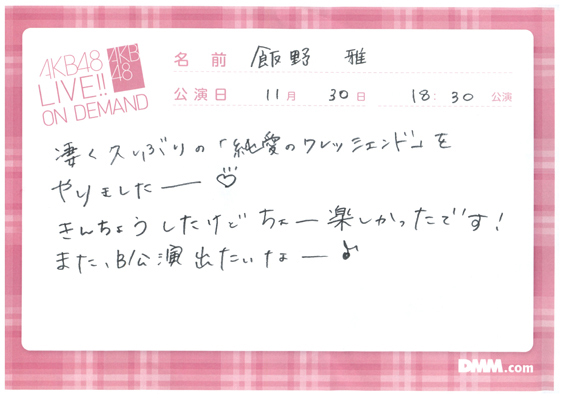 AKB48
LIVE!!
ON DEMAND
AKB
48
名前 飯野 雅
公演日 11月 30日 18:30 公演
凄く久しぶりの「純愛のクレッシェンド」を
やりましたー♡
きんちょうしたけどちょー楽しかったです!
また、B公演出たいなー♪
DMM.com